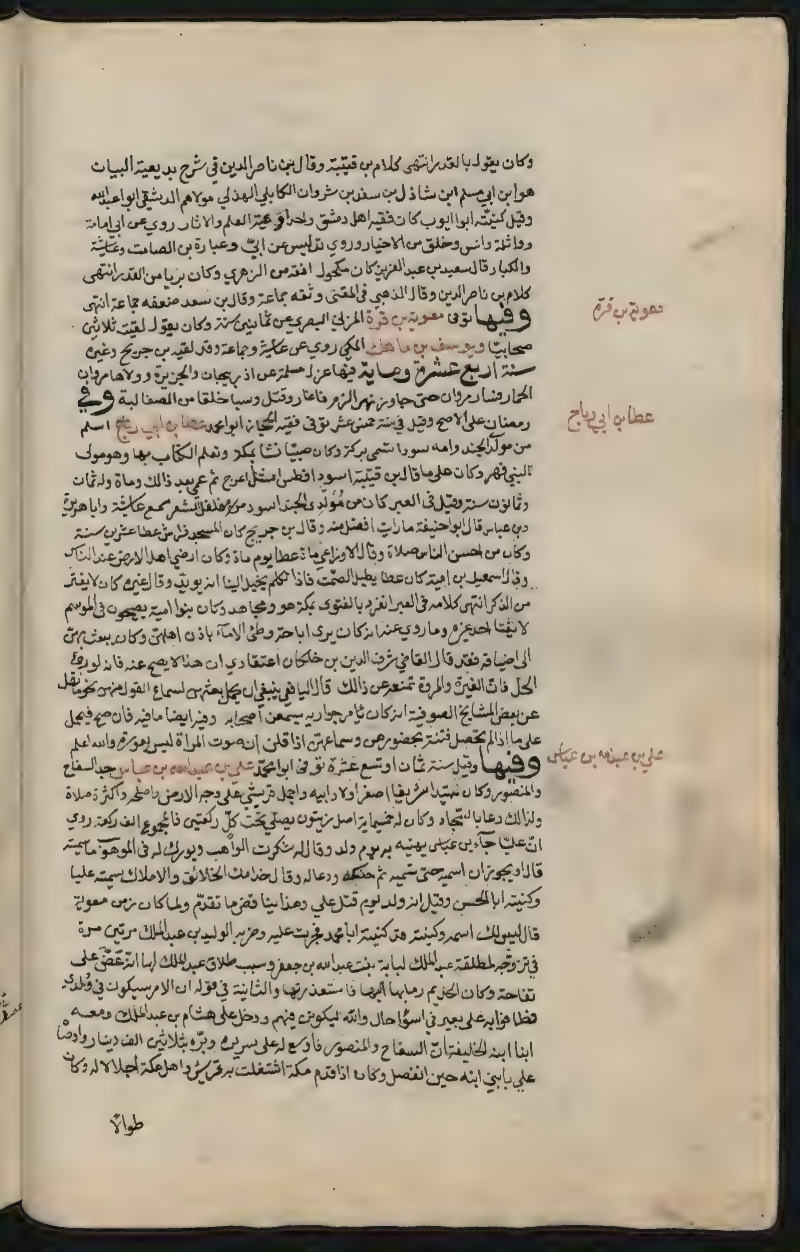 وكان يقول بالقدر انتهى كلام بن قتيبة وقال بن ناصر الدين في شرح بديعية البيات
هو ابن ابي مسلم ابن شاذل بن سفد بن شروان الكابلي الهذلي مولاهم الدمشقي ابوا عبدالله
وقيل كنيته ابوا ايوب كان فقيه اهل دمشق واحد اوعية العلم والاثار روي عن ابي امامة
وواثلة وانس وخلق من الاخيار وروي تدليس عن ابيّ وعبادة بن الصامت وعائشة
والكبار قال سعيد بن عبد العزيز كان مكحول افقه من الزهري وكان بريا من القدر انتهى
كلام بن ناصر الدين وقال الذهبي في المغني وثقه جماعة وقال بن سعد ضعفه جماعة انتهى
وفيها توفى معوية بن قرة المزني البصري عن ثمانين سنة وكان يقول لقيت ثلاثين
صحابيا ويوسف بن ماهك المكي روي عن عائشة وجماعة وقد لقيه بن جريج وغيره
سنة اربع عشرة وماية فيها عزل مسلمة عن اذربيجان والجزيرة وولاها مروان
الحمار فسار مروان حتى جاوز نهر الزم فاغار وقتل وسبا خلقا من الصقالبة وفي
رمضان على الاصح وقيل في سنة خمس عشر توفى فقيه الحجاز ابوا محمد عطا بن ابي رباح اسلم
من مولد الجند وامه سودا تسمى بركة وكان صبيا نشا بمكة وتعلم الكتاب بها وهو مولى
لبني فهر وكان على ما قال بن قتيبة اسود افطس اشل اعرج ثم عمي بعد ذالك ومات وله ثمان
وثمانون سنة وقيل في العبر كان من مُوَلّدي الجند اسود مفلفل الشعر سمع عائشة وابا هريرة
وبن عباس قال ابوا حنيفة ما رايت افضل منه وقال بن جريج كان المسجد فراش عطا عشرين سنة
وكان من احسن الناس صلاة وقال الاوزاعي مات عطا يوم مات وكان ارضى اهل الارض عند الناس
وقال اسمعيل بن امية كان عطا يطيل الصمت فاذا تكلم يخيل الينا انه يويد وقال غيره كان لا يفتر
من الذكر انتهى كلامه في العبر انفرد بالفتوى بمكة هو ومجاهد وكان بنوا امية يصيحون في الموسم
لا يفتا احد غيره وما روي عنه انه كان يرى اباحة وطئ الاماء باذن اهلهن وكان يبعث بهن
الى اضيافه فقد قال القاضي شرف الدين بن خلكان اعتقادي ان هذا لا يصح عنه فانه لو راى
الحل فان الغيرة والمروة تمنعه عن ذالك قال اليافعي ينبغي ان يحمل بعثهن لسماع القول منهن نحو ما نقل
عن بعض المشايخ الصوفية انه كان يامر جواريه يسمعن اصحابه وفيه ايضا ما فيه فان صح فيحمل
على ما اذا لم تحصل فتنة بحضورهن وسماعهن اذا قلنا ان صوت المراة ليس بعورة والله اعلم
وفيها وقيل سنة ثمان او تسع عشرة توفى ابوا محمد علي بن عبد الله بن عباس جد السفاح
والمنصور وكان سيدا شريفا اصغر اولاد ابيه واجمل قرشي على وجه الارض واصلحه واكثره صلاة
ولذالك دعا بالسجاد وكان له خمسماية اصل زيتون يصلي تحت كل ركعتين فالمجموع الف ركعة روي
ان عليا جاء بن عباس يهنيه به يوم ولد وقال له شكرت الواهب وبورك له في الموهوب ما سميته
قال او يجوز ان اسميه حتى تسميه ثم حنكه ودعا له وقال خذ اليك ابا الخلائق والاملاك سميته عليا
وكنيته ابا الحسن وقيل انه ولد يوم قتل علي وهذا يناقض ما تقدم ولما كان زمن معوية
قال ليس لك اسمه وكنيته قد كنيته ابا محمد فجرت عليه وضربه الوليد بن عبد الملك مرتين مرة
في تزوجه لمطلقة عبد الملك لبابة بنت عبد الله بن جعفر وسبب طلاق عبد الملك لها انه عضّ على
تفاحة وكان ابخر ثم رماها اليها فاستقذرتها والثانية في قوله ان الامر سيكون في ولدي
فطافوا به على بعير في اسوأ حال والله ليكونن فيهم ودخل على هشام بن عبد الملك ومعه
ابنا ابنه الخليفتان السفاح والمنصور فاوسع له على سريره وبره بثلاثين الف دينار واوصا
علي بابني ابنه حين انفصل وكان اذا قدم مكة اشتغلت به قريش واهل مكة اجلالا له وكان
طوالا
معوية بن قرة
عطا بن ابي رباح
علي بن عبد الله بن عباس